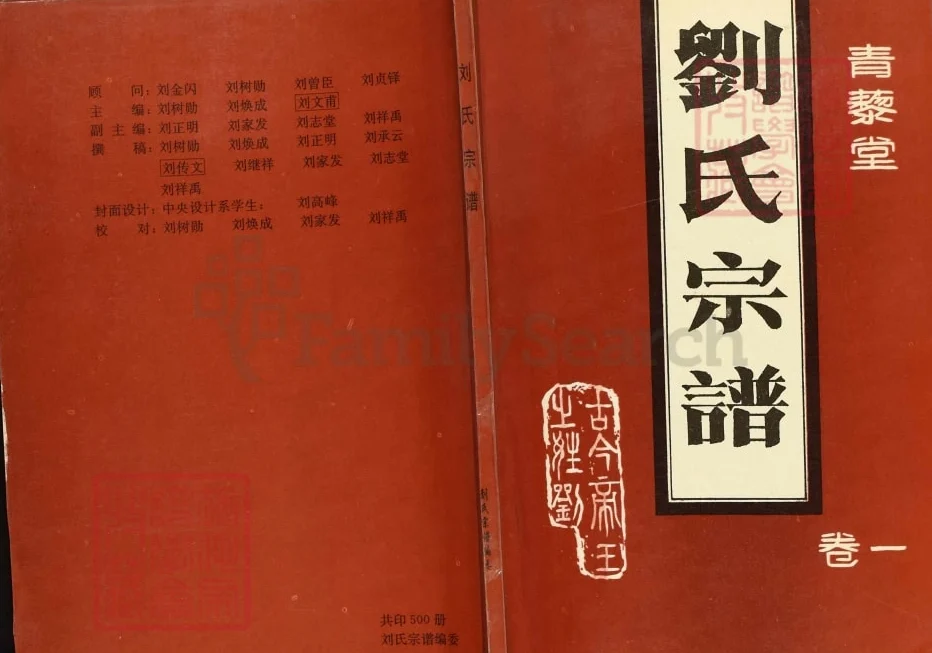 青藜堂
劉氏宗譜
卷一
古今帝王
之姓劉
刘氏宗谱
顾 问：刘金闪 刘树勋 刘曾臣 刘贞铎
主 编：刘树勋 刘焕成 刘文甫
副主编：刘正明 刘家发 刘志堂 刘祥禹
撰 稿：刘树勋 刘焕成 刘正明 刘承云
刘传文 刘继祥 刘家发 刘志堂
刘祥禹
封面设计：中央设计系学生： 刘高峰
校 对：刘树勋 刘焕成 刘家发 刘祥禹
共印500册
刘氏宗谱编委
FamilySearch